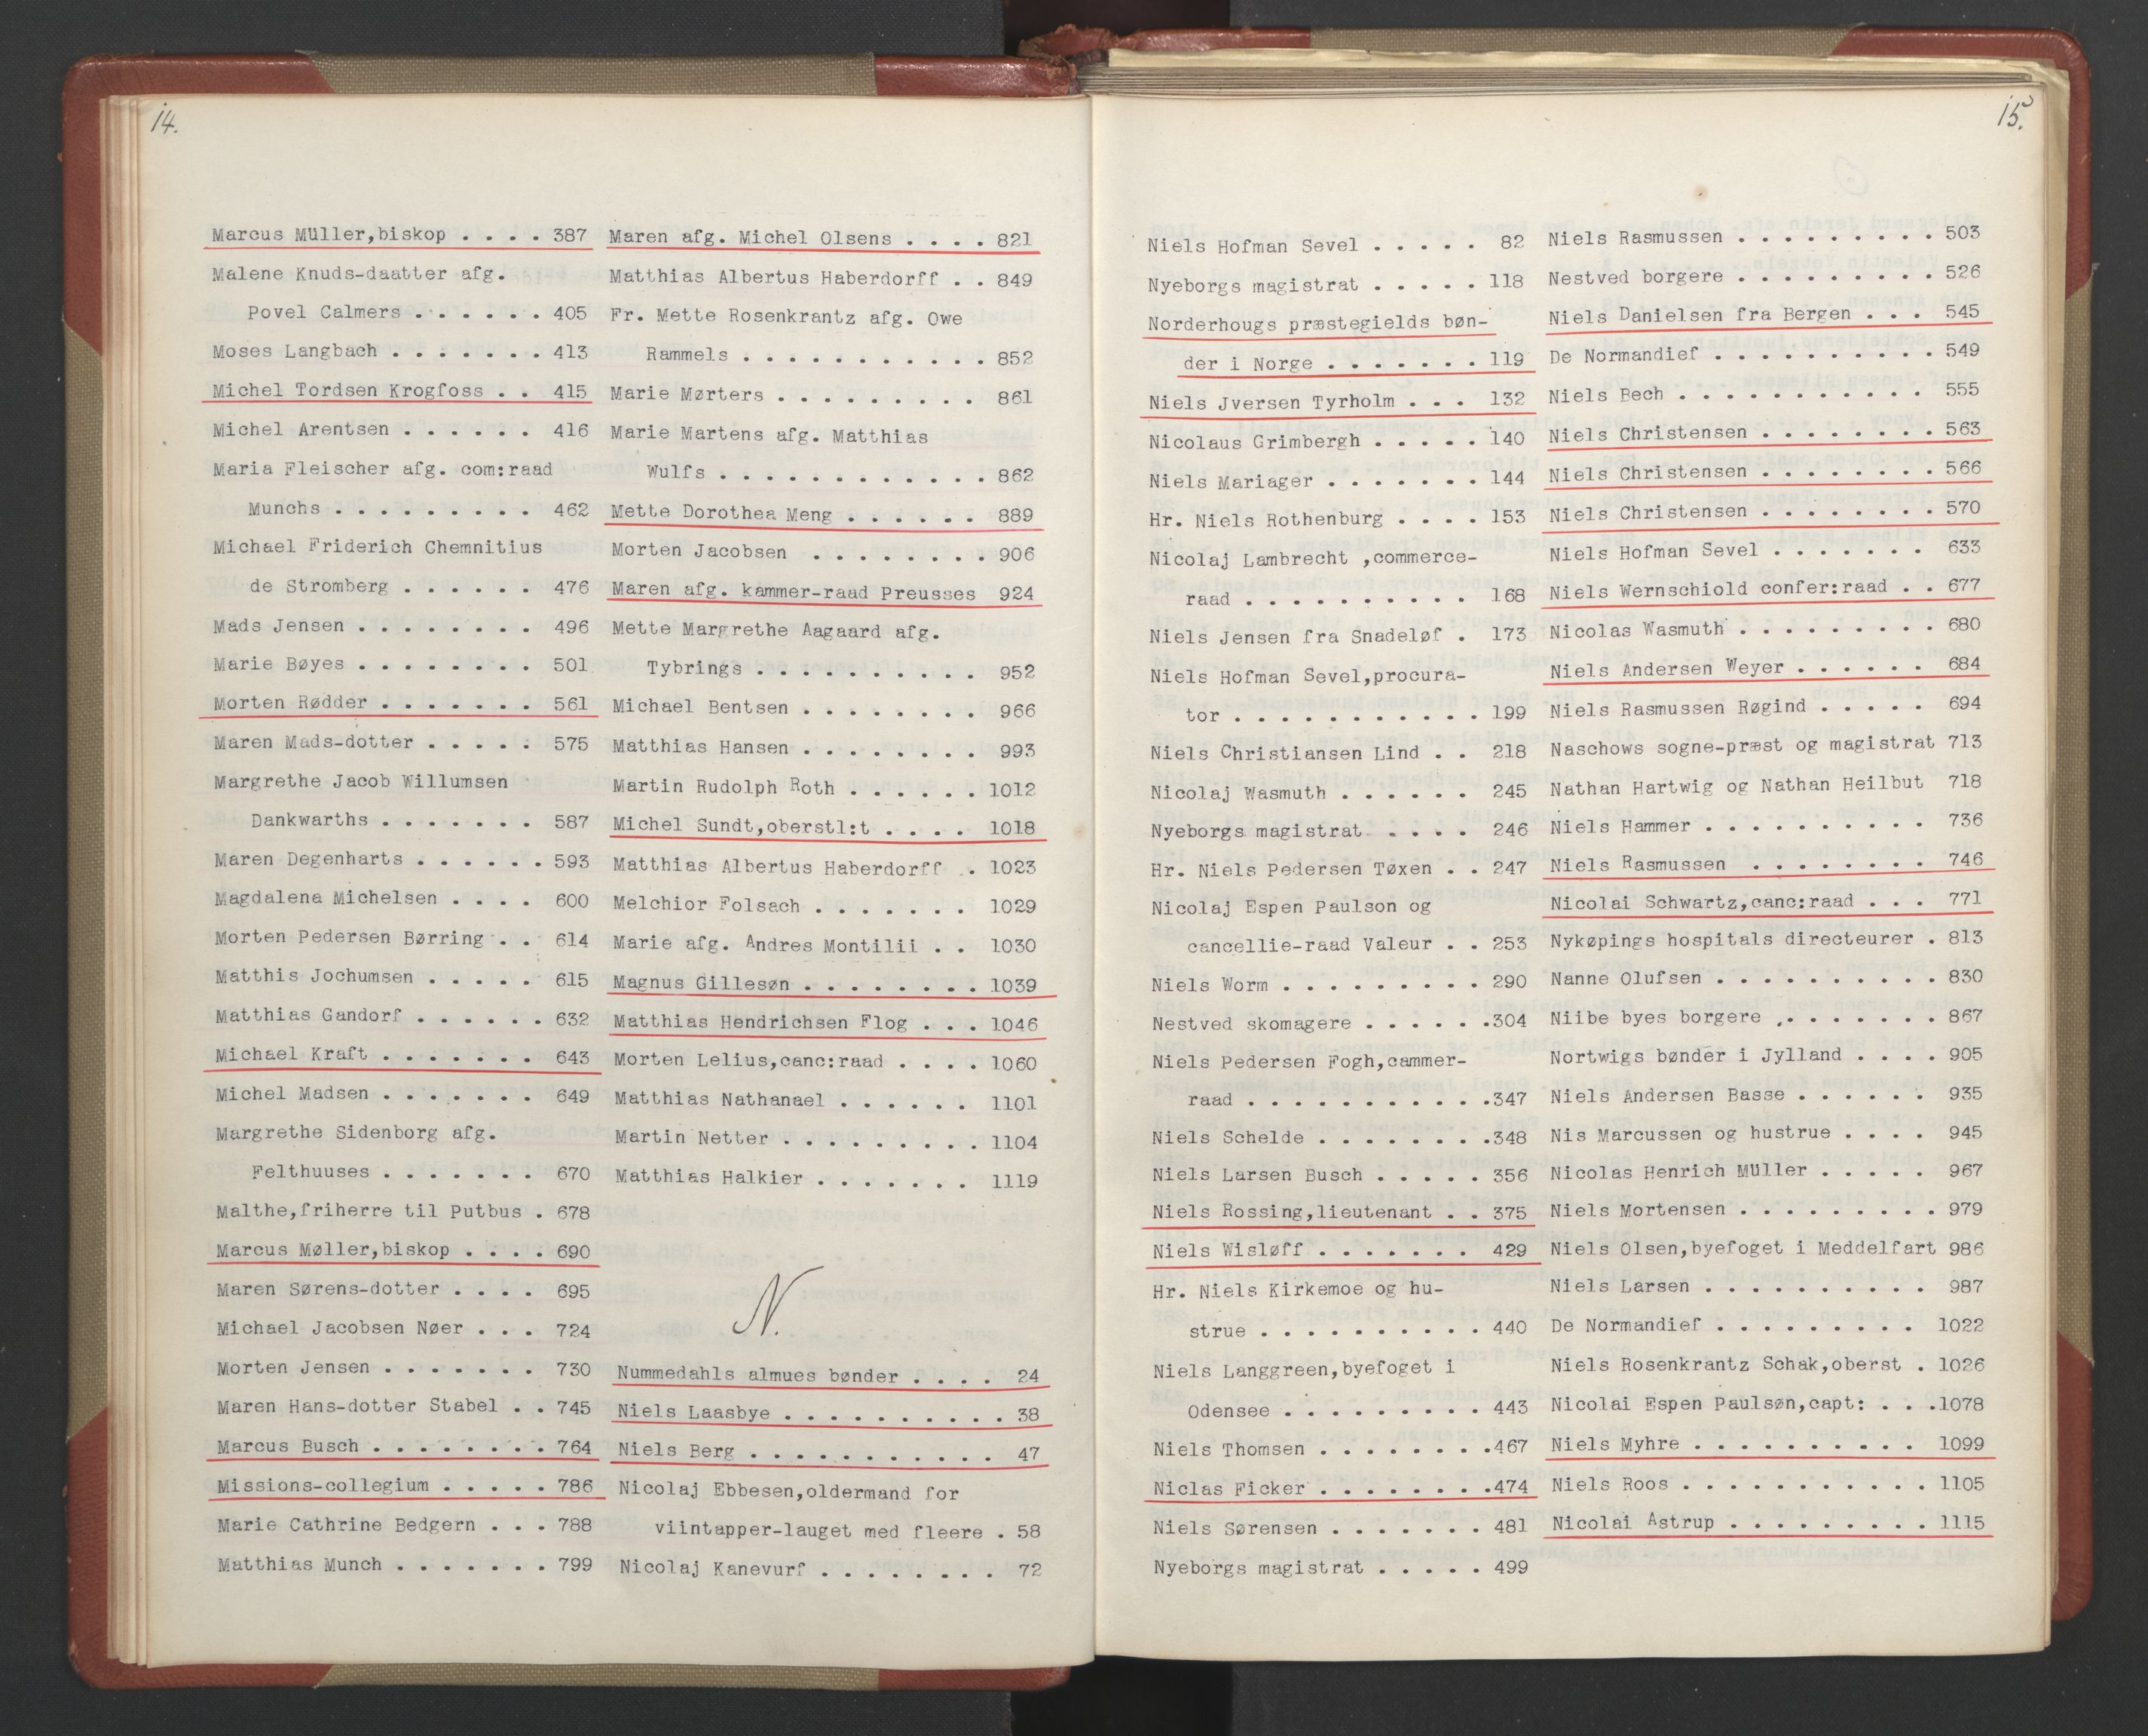 14.
Marcus Müller,biskop . . . . 387
Malene Knuds-daatter afg.
Povel Calmers . . . . . . 405
Moses Langbach . . . . . . . 413
Michel Tordsen Krogfoss . . 415
Michel Arentsen . . . . . . 416
Maria Fleischer afg. com:raad
Munchs . . . . . . . . . 462
Michael Friderich Chemnitius
de Stromberg . . . . . . 476
Mads Jensen . . . . . . . . 496
Marie Bøyes . . . . . . . . 501
Morten Rødder . . . . . . . 561
Maren Mads-dotter . . . . . 575
Margrethe Jacob Willumsen
Dankwarths . . . . . . . 587
Maren Degenharts . . . . . . 593
Magdalena Michelsen . . . . 600
Morten Pedersen Børring . . 614
Matthis Jochumsen . . . . . 615
Matthias Gandorf . . . . . . 632
Michael Kraft . . . . . . . 643
Michel Madsen . . . . . . . 649
Margrethe Sidenborg afg.
Felthuuses . . . . . . . 670
Malthe,friherre til Putbus . 678
Marcus Møller,biskop . . . . 690
Maren Sørens-dotter . . . . 695
Michael Jacobsen Nøer . . . 724
Morten Jensen . . . . . . . 730
Maren Hans-dotter Stabel . . 745
Marcus Busch . . . . . . . . 764
Missions-collegium . . . . . 786
Marie Cathrine Bedgern . . . 788
Matthias Munch . . . . . . . 799
Maren afg. Michel Olsens . . . . 821
Matthias Albertus Haberdorff . . 849
Fr. Mette Rosenkrantz afg. Owe
Rammels . . . . . . . . . . . 852
Marie Mørters . . . . . . . . . 861
Marie Martens afg. Matthias
Wulfs . . . . . . . . . . . . 862
Mette Dorothea Meng . . . . . . 889
Morten Jacobsen . . . . . . . . 906
Maren afg. kammer-raad Preusses 924
Mette Margrethe Aagaard afg.
Tybrings . . . . . . . . . . 952
Michael Bentsen . . . . . . . . 966
Matthias Hansen . . . . . . . . 993
Martin Rudolph Roth . . . . . . 1012
Michel Sundt,oberstl:t . . . . 1018
Matthias Albertus Haberdorff . . 1023
Melchior Folsach . . . . . . . 1029
Marie afg. Andres Montilii . . 1030
Magnus Gillesøn . . . . . . . . 1039
Matthias Hendrichsen Flog . . . 1046
Morten Lelius,canc:raad . . . . 1060
Matthias Nathanael . . . . . . 1101
Martin Netter . . . . . . . . . 1104
Matthias Halkier . . . . . . . 1119
N.
Nummedahls almues bønder . . . . 24
Niels Laasbye . . . . . . . . . . 38
Niels Berg . . . . . . . . . . . 47
Nicolaj Ebbesen,oldermand for
viintapper-lauget med fleere . 58
Nicolaj Kanevurf . . . . . . . . 72
15.
Niels Hofman Sevel . . . . . 82
Nyeborgs magistrat . . . . . 118
Norderhougs præstegields bøn-
der i Norge . . . . . . . 119
Niels Jversen Tyrholm . . . 132
Nicolaus Grimbergh . . . . . 140
Niels Mariager . . . . . . . 144
Hr. Niels Rothenburg . . . . 153
Nicolaj Lambrecht ,commerce-
raad . . . . . . . . . . 168
Niels Jensen fra Snadeløf . 173
Niels Hofman Sevel,procura-
tor . . . . . . . . . . . 199
Niels Christiansen Lind . . 218
Nicolaj Wasmuth . . . . . . 245
Nyeborgs magistrat . . . . 246
Hr. Niels Pedersen Tøxen . . 247
Nicolaj Espen Paulson og
cancellie-raad Valeur . . 253
Niels Worm . . . . . . . . . 290
Nestved skomagere . . . . . .304
Niels Pedersen Fogh,cammer-
raad . . . . . . . . . . .347
Niels Schelde . . . . . . . .348
Niels Larsen Busch . . . . . 356
Niels Rossing,lieutenant . . 375
Niels Wisløff . . . . . . . 429
Hr. Niels Kirkemoe og hu-
strue . . . . . . . . . . 440
Niels Langgreen,byefoget i
Odensee . . . . . . . . . 443
Niels Thomsen . . . . . . . .467
Niclas Ficker . . . . . . . .474
Niels Sørensen . . . . . . . 481
Nyeborgs magistrat . . . . . 499
Niels Rasmussen . . . . . . . . . 503
Nestved borgere . . . . . . . . . 526
Niels Danielsen fra Bergen . . . 545
De Normandief . . . . . . . . . . 549
Niels Bech . . . . . . . . . . . 555
Niels Christensen . . . . . . . . 563
Niels Christensen . . . . . . . . 566
Niels Christensen . . . . . . . . 570
Niels Hofman Sevel . . . . . . . 633
Niels Wernschiold confer:raad . . 677
Nicolas Wasmuth . . . . . . . . . 680
Niels Andersen Weyer . . . . . . 684
Niels Rasmussen Røgind . . . . . 694
Naschows sogne-præst og magistrat 713
Nathan Hartwig og Nathan Heilbut 718
Niels Hammer . . . . . . . . . . 736
Niels Rasmussen . . . . . . . . 746
Nicolai Schwartz,canc:raad . . . 771
Nykøpings hospitals directeurer . 813
Nanne Olufsen . . . . . . . . . . 830
Niibe byes borgere . . . . . . . . 867
Nortwigs bønder i Jylland . . . . 905
Niels Andersen Basse . . . . . . 935
Nis Marcussen og hustrue . . . . 945
Nicolas Henrich Müller . . . . . 967
Niels Mortensen . . . . . . . . . 979
Niels Olsen,byefoget i Meddelfart 986
Niels Larsen . . . . . . . . . . 987
De Normandief . . . . . . . . . 1022
Niels Rosenkrantz Schak,oberst . 1026
Nicolai Espen Paulsøn,capt: . . .1078
Niels Myhre . . . . . . . . . . 1099
Niels Roos . . . . . . . . . . . 1105
Nicolai Astrup . . . . . . . . . 1115